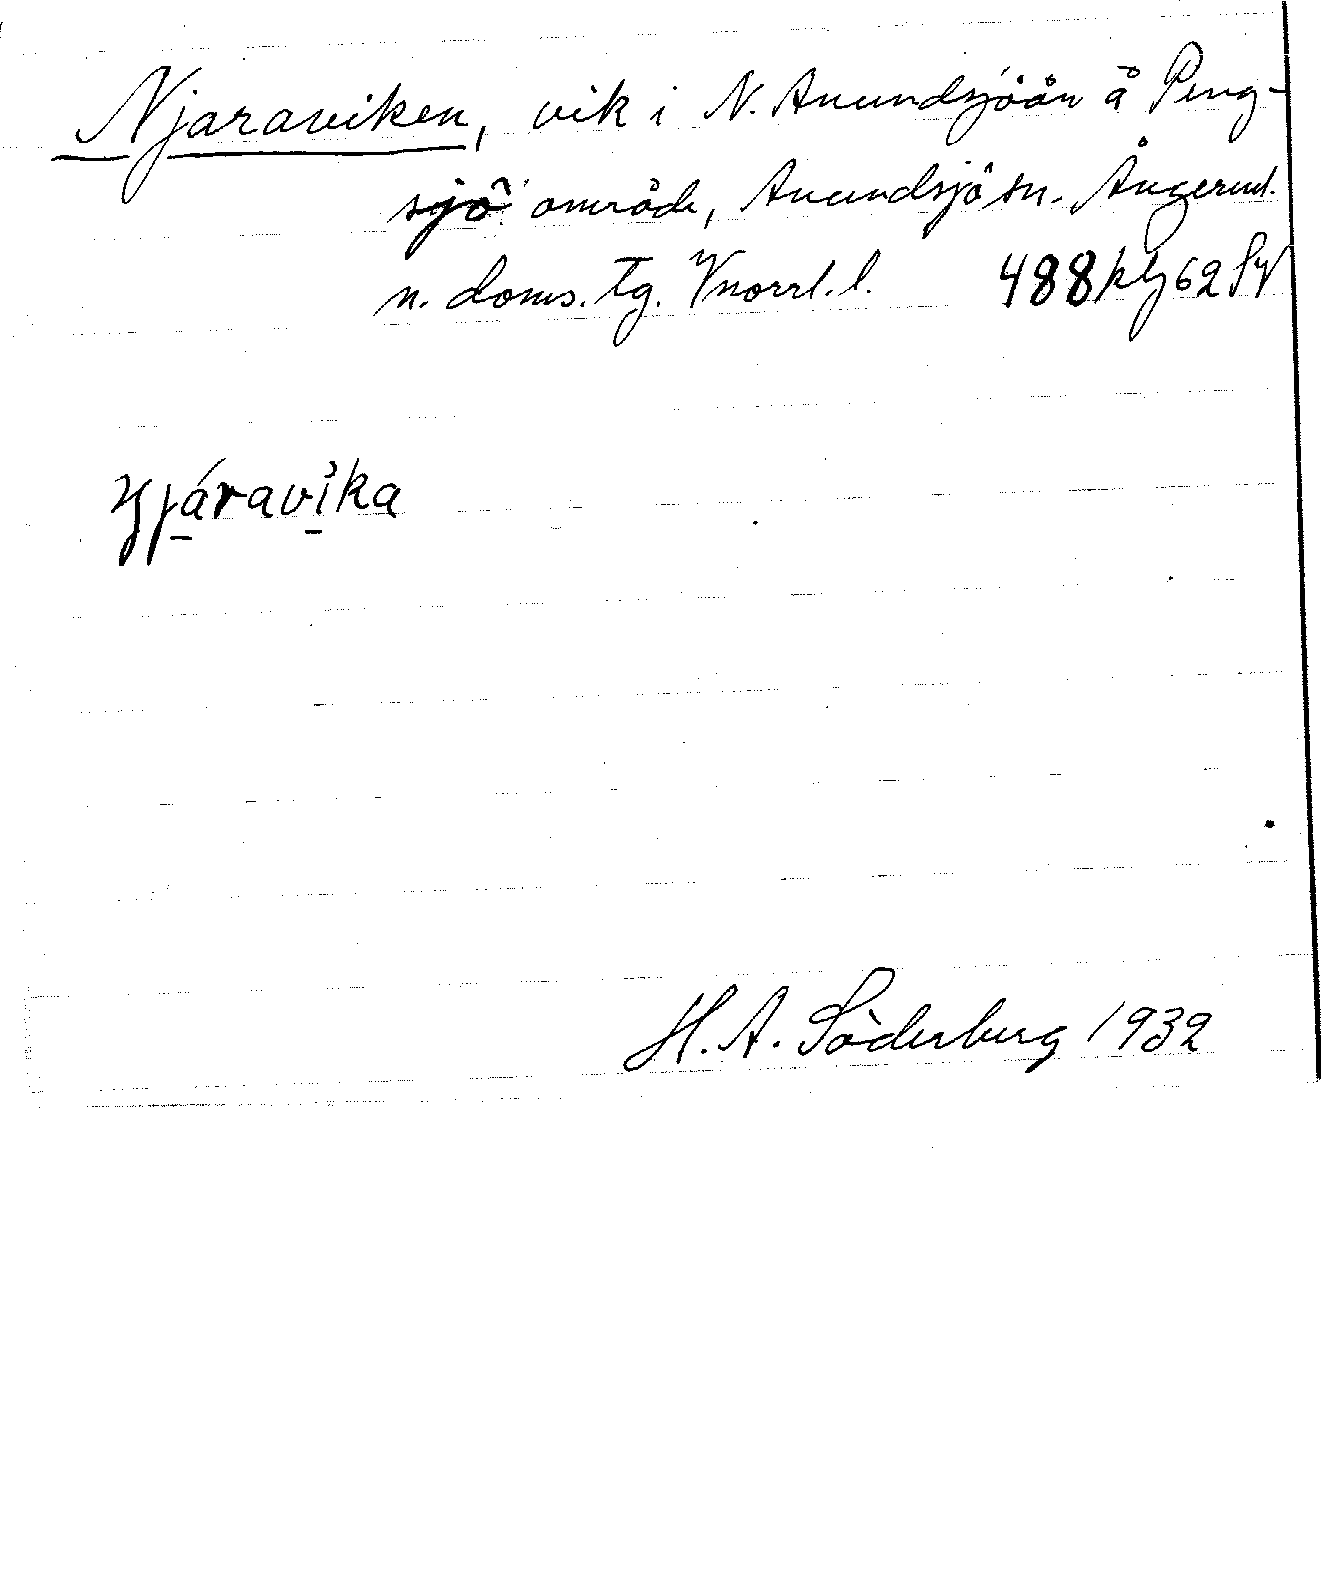 Njaraviken, vik i N. Anundsjöån å Peng-
sjö område, Anundsjö sn. Ångerml.
n. doms. tg. Vnorrl. l. 488 62
járavika
H. A. Söderberg 1932